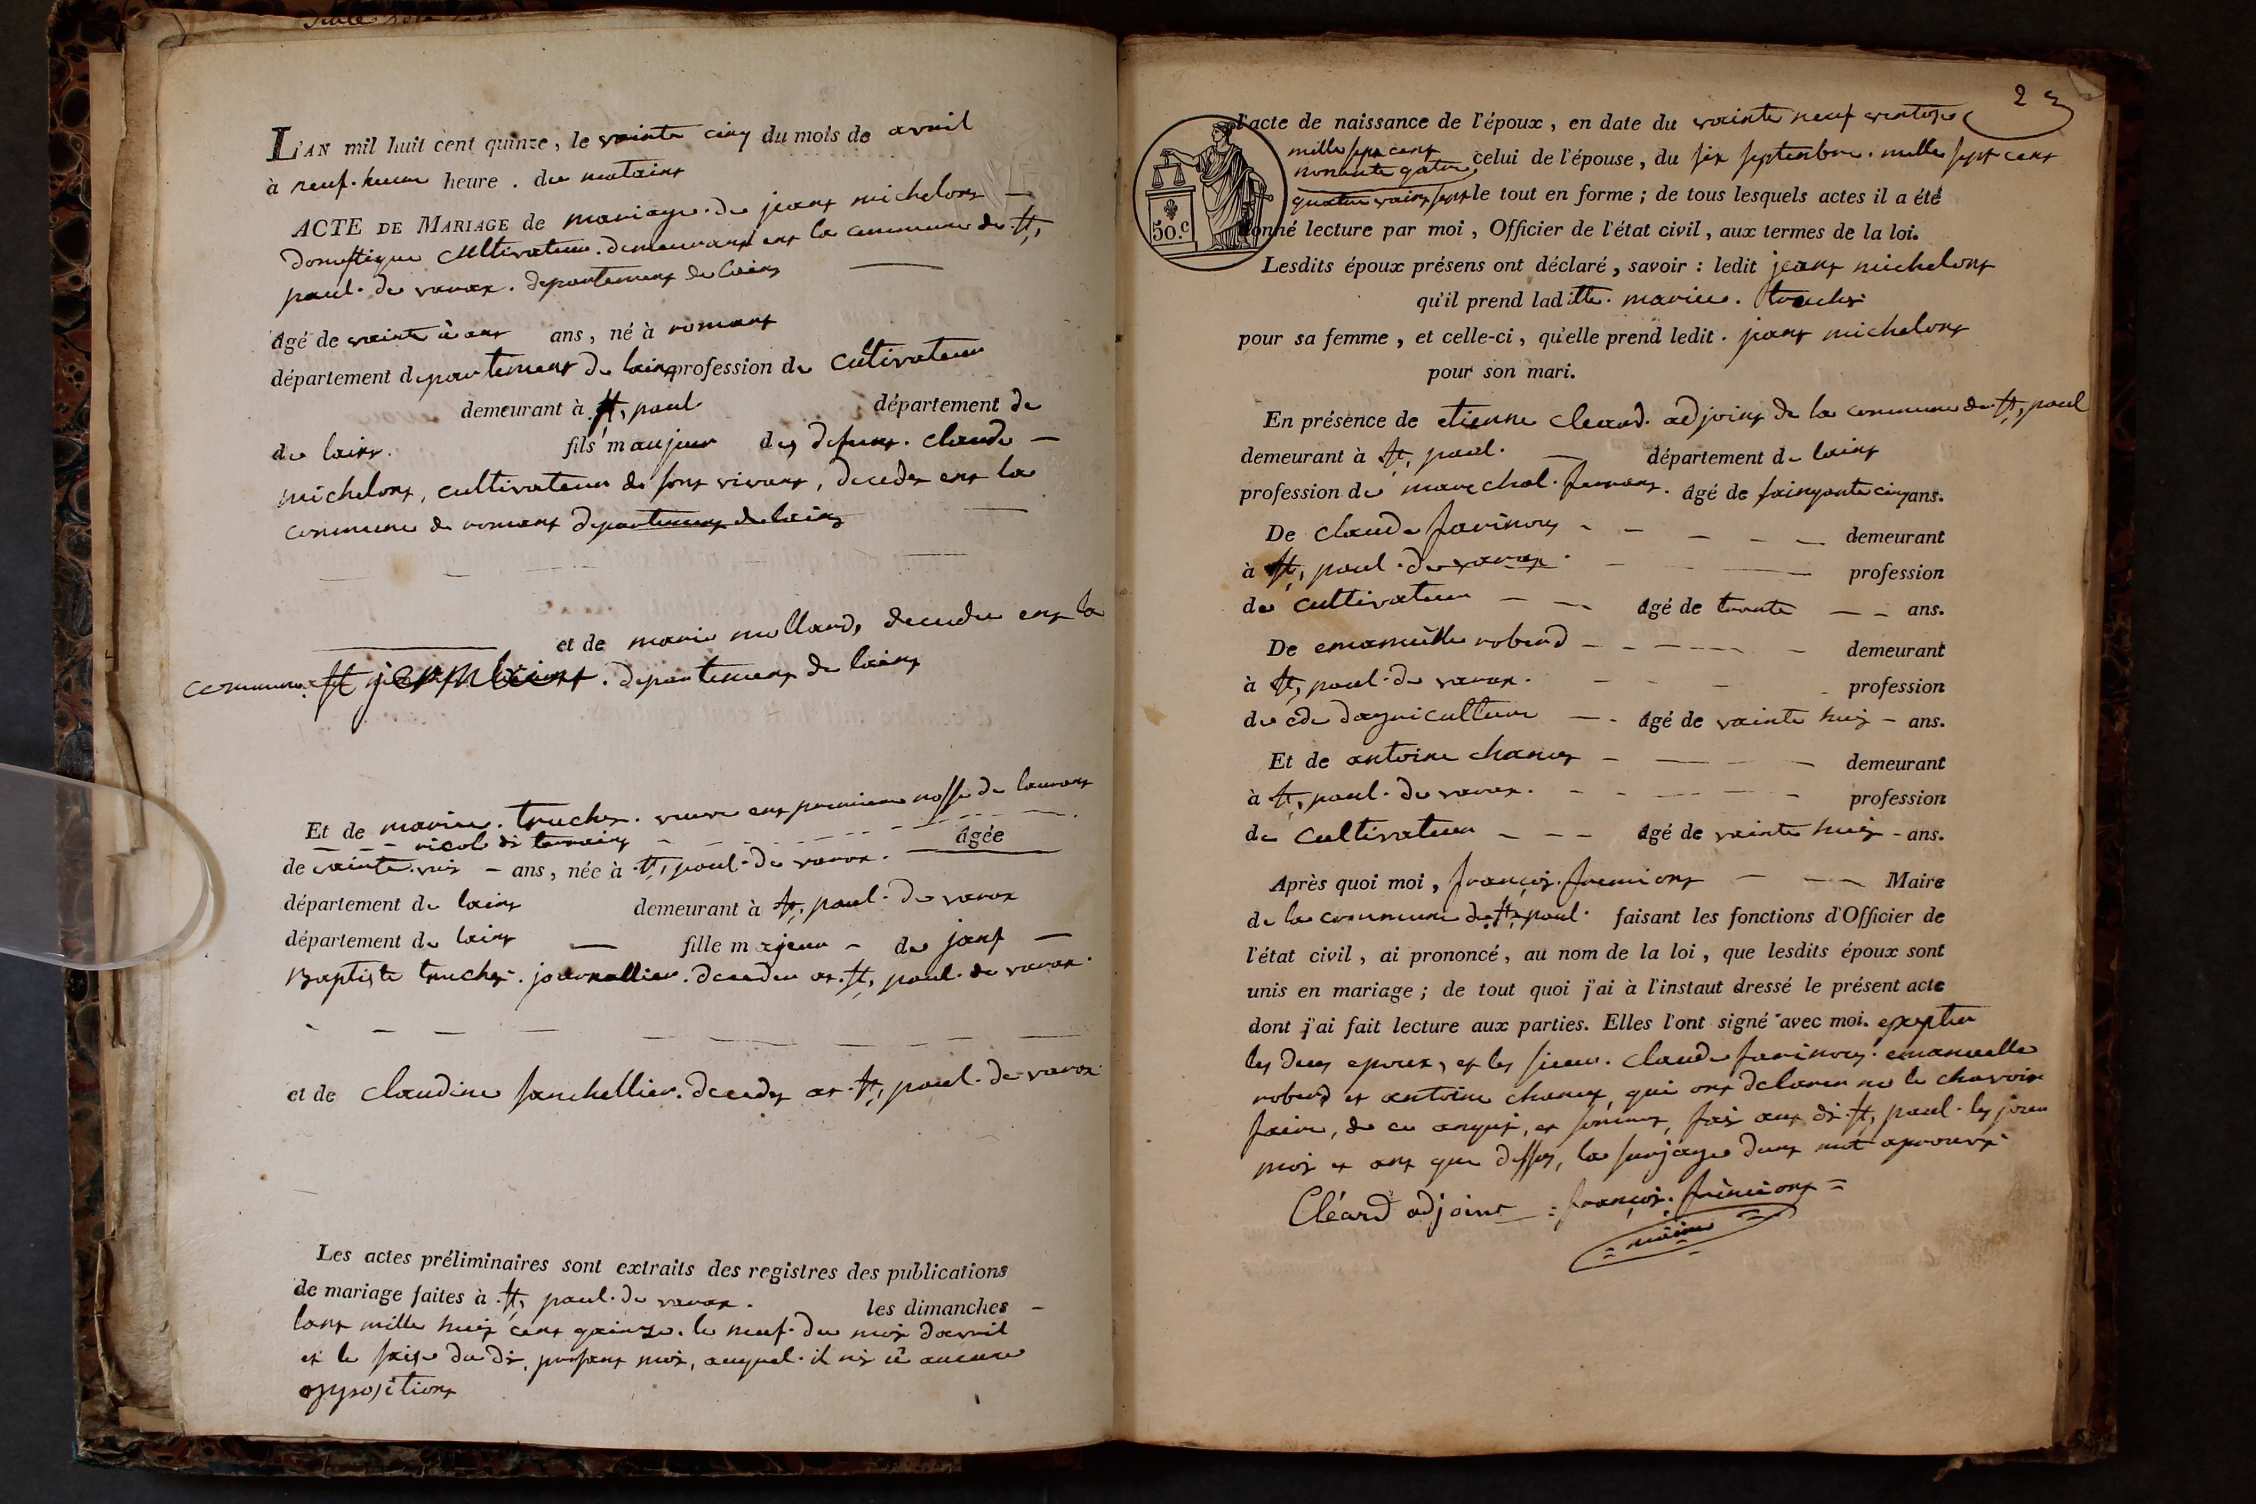 L'AN mil huit cent quinze, le vainte cinq du mois de avril
à neuf. heure heure . du matains
ACTE DE MARIAGE de mariage. de jeant michelont —
domestique cultivateur. demeurant ent la commune de st,
paul. de varax. departement de lains
âgé de vainte ans, né à romant
département departement de lains profession de cultivateur
demeurant à st, paul département de
de lains. fils maujeur des defunt. claude —
michelont, cultivateur de sont vivant, decedes ent la
commune de romant departement de lains
et de marie mollard, decedee ent la
commune st . departement de lains
Et de mariee. truches. veuve ent premiere nosse de laurant
nicol de âgée
de vainte — ans, née à st, paul. de varax.
département de lains demeurant à st, paul. de varax
département de lains — fille majeur - de jant —
Baptiste truches. journallier. decedee at. st, paul. de varax.
et de claudine sanchellier. decedes at. st, paul. de varax
Les actes préliminaires sont extraits des registres des publications
de mariage faites à st, paul. de varax. les dimanches -
lant mille huit cent quinze. le neuf. du mois davril
et le saise du dt, present mois, auquel. il nis û aucune
oppositiont
2
l'acte de naissance de l'époux, en date du vainte neuf ventose
mille sept cent
nonante qatre celui de l'épouse, du six septembre. mille sept cent
quatre vaint sept le tout en forme ; de tous lesquels actes il a été
donné lecture par moi, Officier de l'état civil, aux termes de la loi.
50.c
Lesdits époux présens ont déclaré, savoir : ledit jeant michelont
qu'il prend laditte. mariee. truches
pour sa femme, et celle-ci, qu'elle prend ledit . jeant michelont
pour son mari.
En présence de etienne cleard. adjoint de la commune de st, paul
demeurant à st, paul. — département de lains
profession de marechal. ferrant. âgé de sainquante cinq ans.
De claude favinoy - - - - — demeurant
à st, paul. de varax. - profession
de cultivateur - - âgé de trente — - ans.
De emanuelle roberd - - - - demeurant
à st, paul. de varax. - - profession
de dagriculture — - âgé de vainte huit - ans.
Et de antoine chanet - — - - demeurant
à st, paul. de varax. - - - - profession
de cultivateur - - - âgé de vainte huit - ans.
Après quoi moi, françois. fremiont — - — Maire
de la commune de st, paul. faisant les fonctions d'Officier de
l'état civil, ai prononcé, au nom de la loi, que lesdits époux sont
unis en mariage ; de tout quoi j'ai à l'instaut dressé le présent acte
dont j'ai fait lecture aux parties. Elles l'ont signé avec moi. exeptee
les deus epoux, et les sieur. claude favinoy. emanuelle
roberd et antoine chanet, qui ont delaree ne le chavoir
faire, de ce anquit, et sommet, fais aut dt. st, paul. les jour
mois et ant que dessus, la surjage deux mot aprouvé.
Cléard adjoint = françois. frémiont =
= maire =